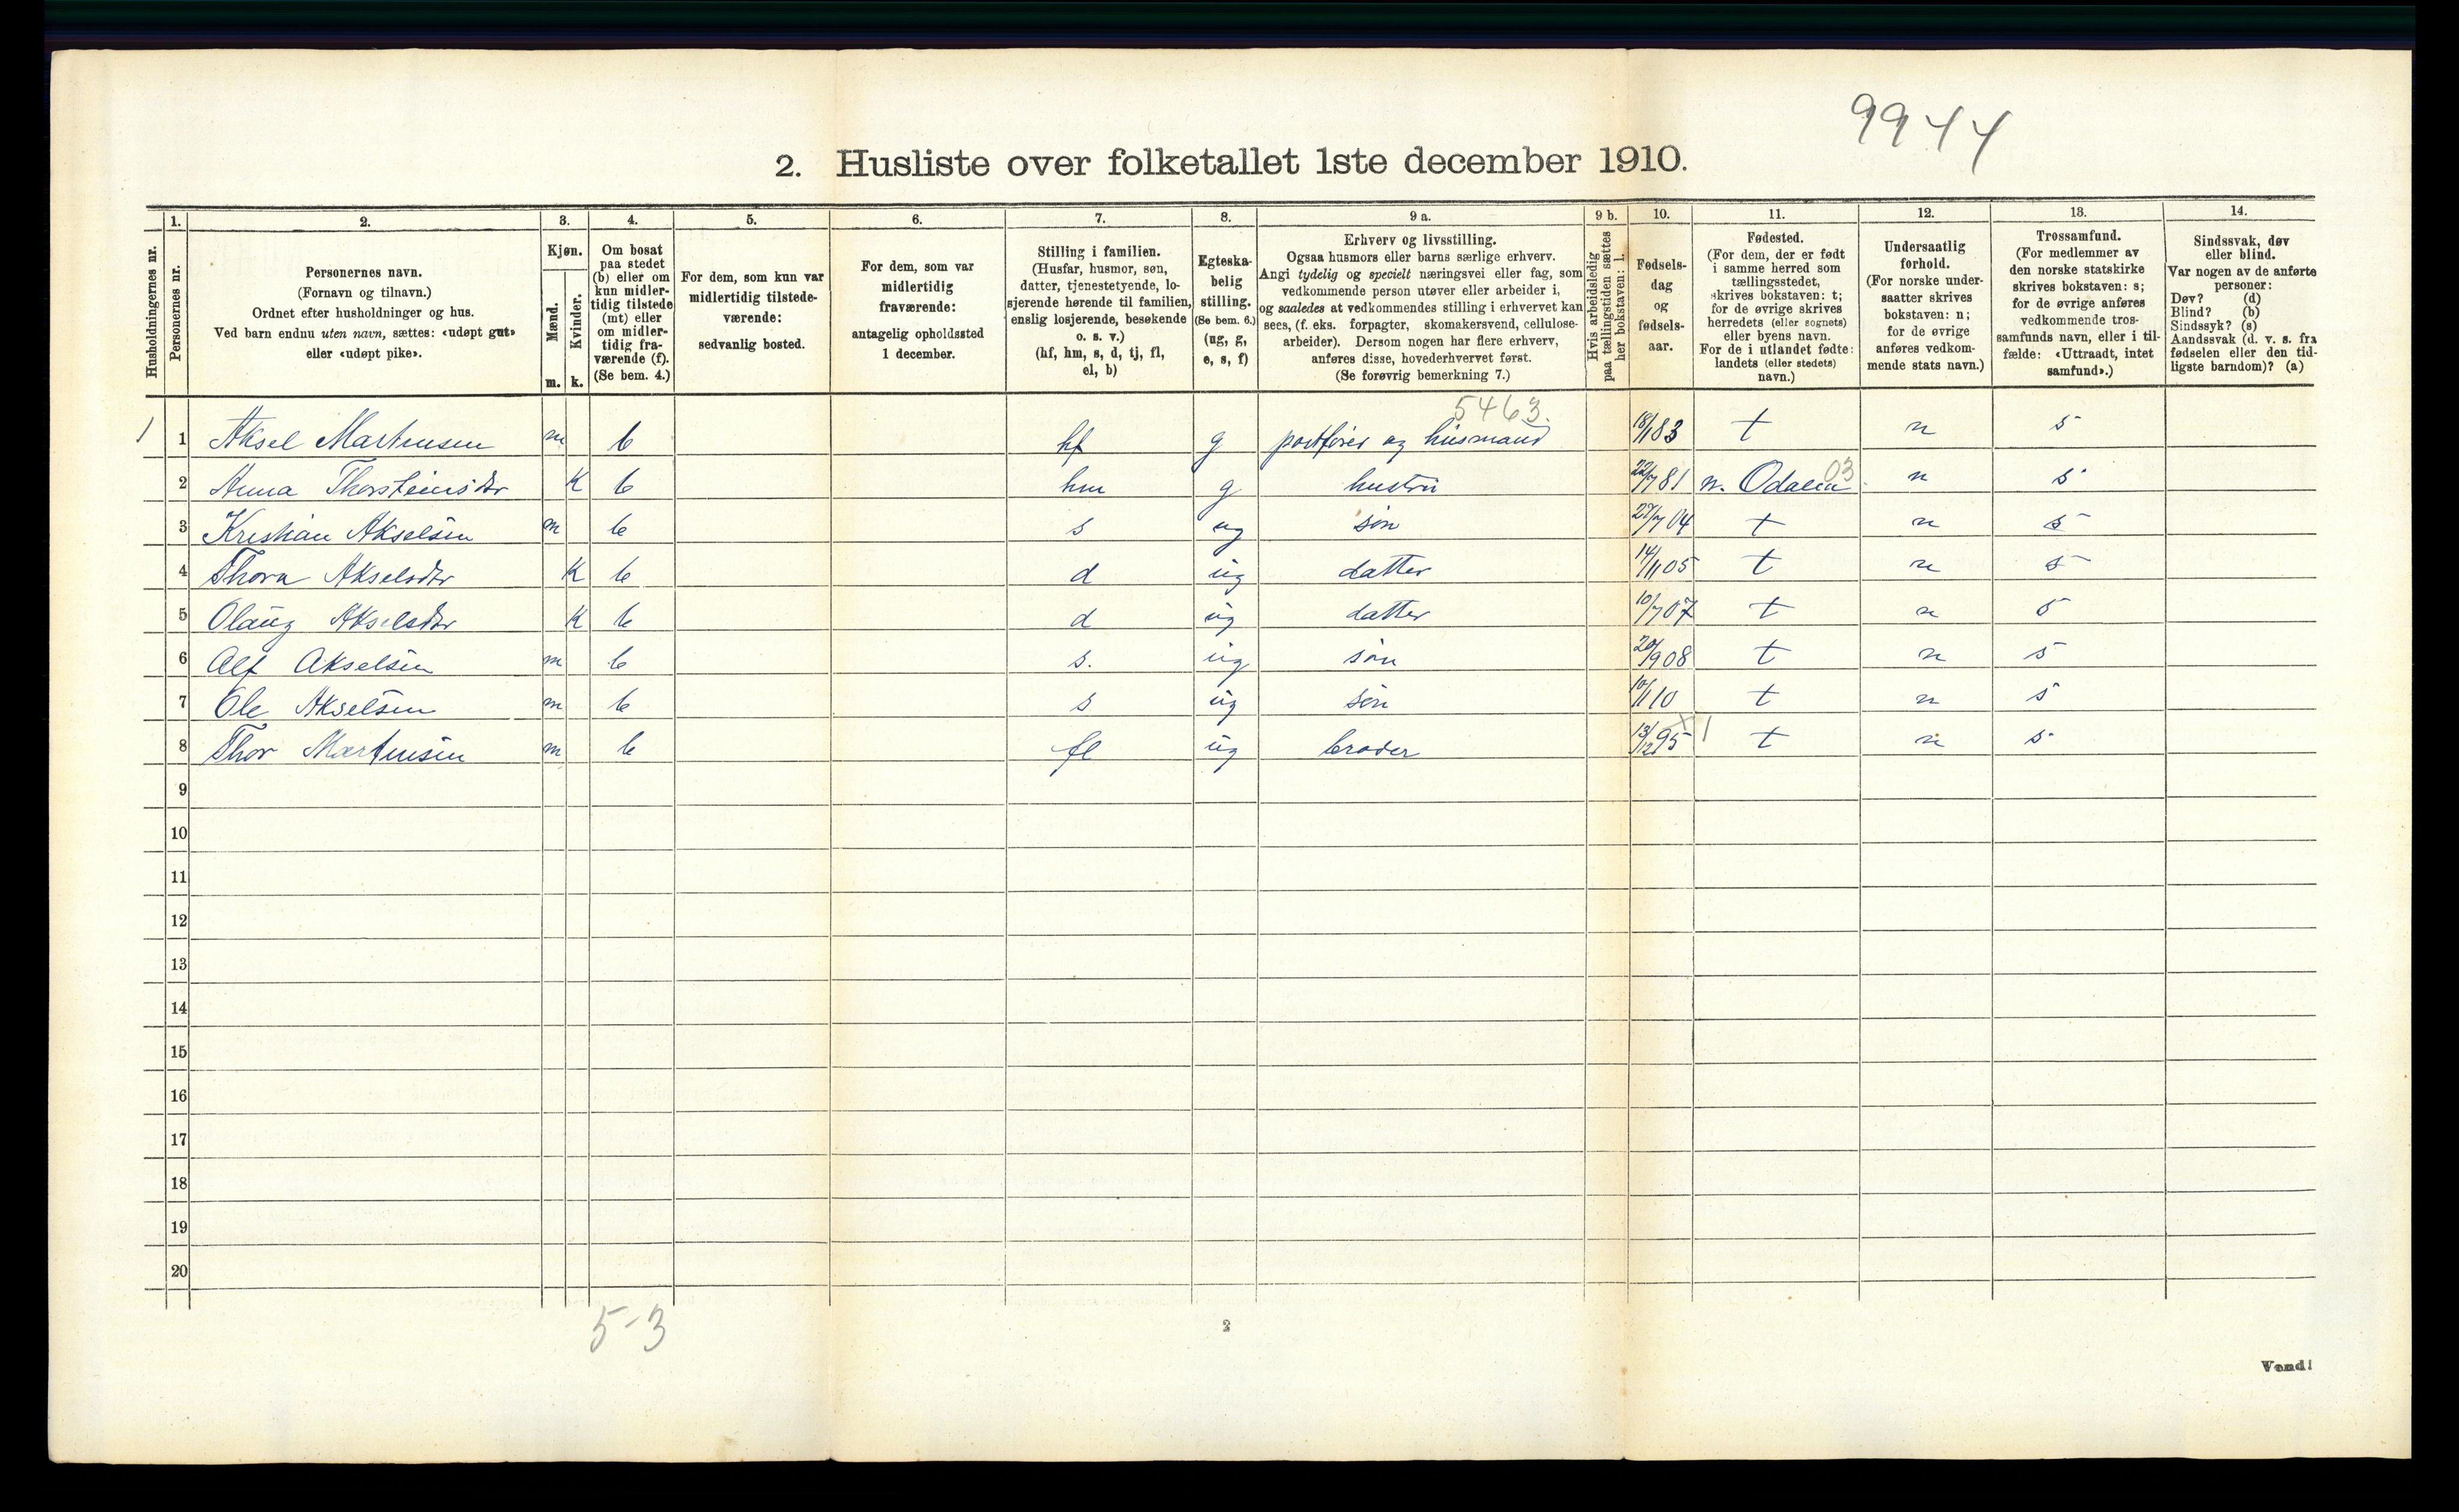 9944
2. Husliste over folketallet 1ste december 1910.
1. 2. 3. 4. 5. 6. 7. 8. 9 a. 9 b. 10. 11. 12. 13. 14.
Husholdningernes nr.
Personernes nr.
Personernes navn.
(Fornavn og tilnavn.)
Ordnet efter husholdninger og hus.
Ved barn endnu uten navn, sættes: «udøpt gut»
eller «udøpt pike».
Kjøn.
Mænd.
Kvinder.
m. k.
Om bosat
paa stedet
(b) eller om
kun midler-
tidig tilstede
(mt) eller
om midler-
tidig fra-
værende (f).
(Se bem. 4.)
For dem, som kun var
midlertidig tilstede-
værende:
sedvanlig bosted.
For dem, som var
midlertidig
fraværende:
antagelig opholdssted
1 december.
Stilling i familien.
(Husfar, husmor, søn,
datter, tjenestetyende, lo-
sjerende hørende til familien,
enslig losjerende, besøkende
o. s. v.)
(hf, hm, s, d, tj, fl,
el, b)
Egteska-
belig
stilling.
(Se bem. 6.)
(ug, g,
e, s, f)
Erhverv og livsstilling.
Ogsaa husmors eller barns særlige erhverv.
Angi tydelig og specielt næringsvei eller fag, som
vedkommende person utøver eller arbeider i,
og saaledes at vedkommendes stilling i erhvervet kan
sees, (f. eks. forpagter, skomakersvend, cellulose-
arbeider). Dersom nogen har flere erhverv,
anføres disse, hovederhvervet først.
(Se forøvrig bemerkning 7.)
Hvis arbeidsledig
paa tællingstiden sættes
her bokstaven: l.
Fødsels-
dag
og
fødsels-
aar.
Fødested.
(For dem, der er født
i samme herred som
tællingsstedet,
skrives bokstaven: t;
for de øvrige skrives
herredets (eller sognets)
eller byens navn.
For de i utlandet fødte:
landets (eller stedets)
navn.)
Undersaatlig
forhold.
(For norske under-
saatter skrives
bokstaven: n;
for de øvrige
anføres vedkom-
mende stats navn.)
Trossamfund.
(For medlemmer av
den norske statskirke
skrives bokstaven: s;
for de øvrige anføres
vedkommende tros-
samfunds navn, eller i til-
fælde: «Uttraadt, intet
samfund».)
Sindssvak, døv
eller blind.
Var nogen av de anførte
personer:
Døv? (d)
Blind? (b)
Sindssyk? (s)
Aandssvak (d. v. s. fra
fødselen eller den tid-
ligste barndom)? (a)
5463.
1 1 Aksel Martinsen m b hf g postfører og husmand 18/1 83 t n s
2 Anna Thorsteinsdtr k b hm g hustru 22/7 81 n. Odalen 03 n s
3 Kristian Akselsen m b s ug søn 27/7 04 t n s
4 Thora Akselsdtr k b d ug datter 14/11 05 t n s
5 Olaug Akselsdtr k b d ug datter 10/7 07 t n s
6 Alf Akselsen m b s. ug søn 20/9 08 t n s
7 Ole Akselsen m b s ug søn 10/1 10 t n s
8 Thor Martinsen m b fl ug broder 13/12 95 x 1 t n s
9
10
11
12
13
14
15
16
17
18
19
20
5-3
2
Vend!